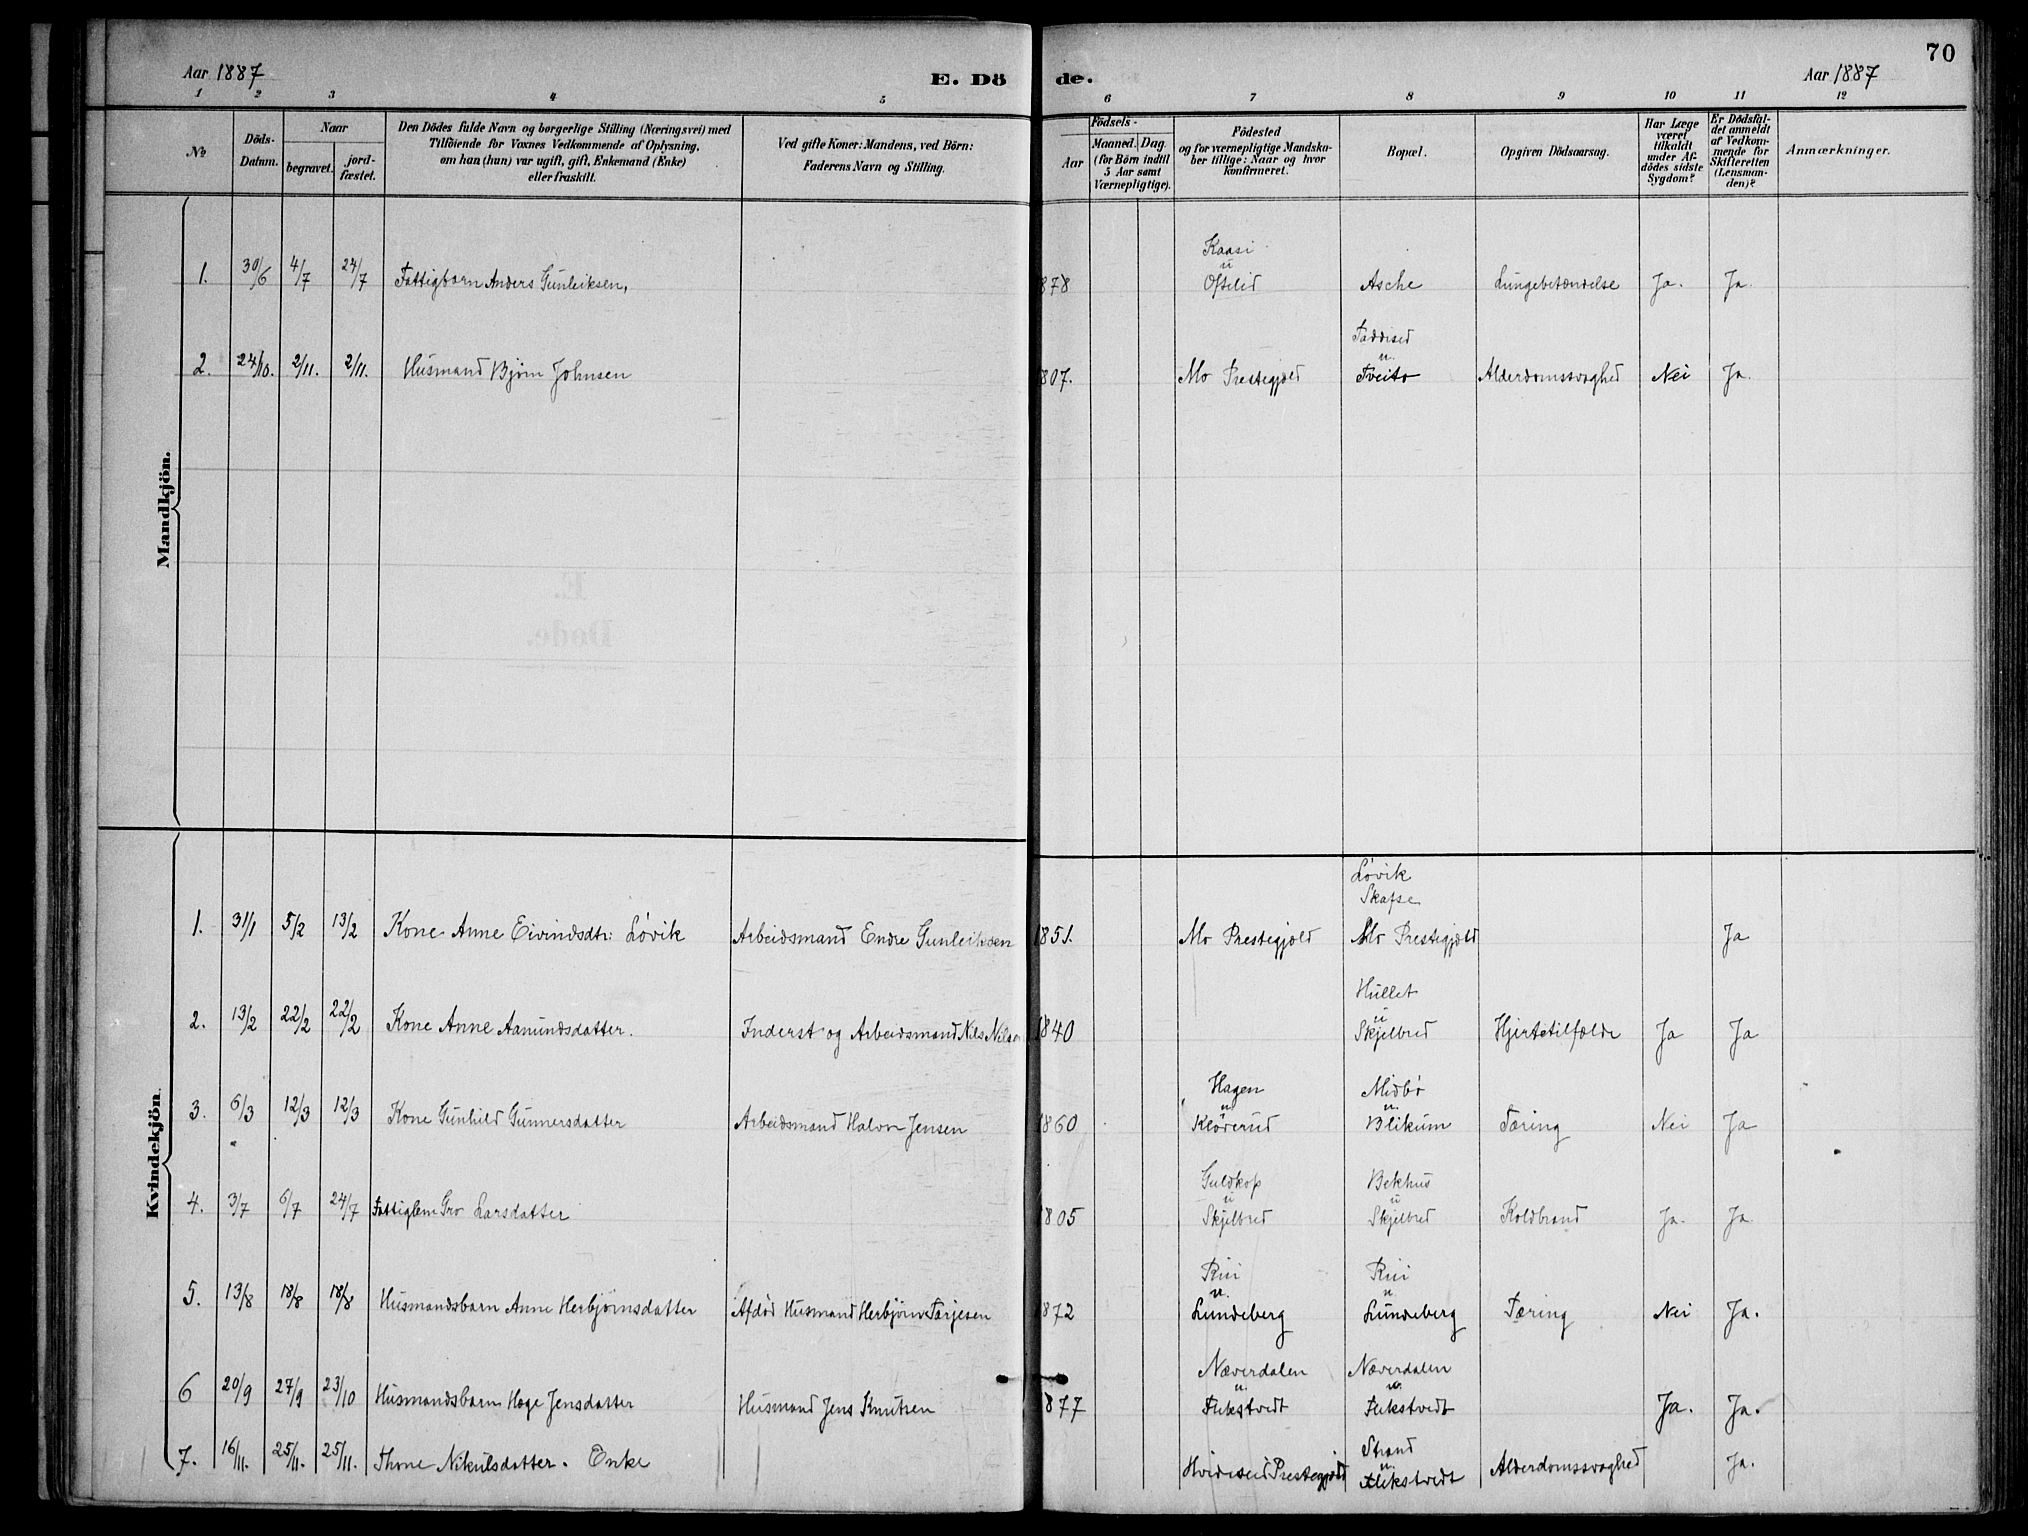 70
Aar 1887
E. Dö
de.
Aar 1887
1 2 3 4 5 6 7 8 9 10 11 12
No
Döds-Datum.
Naar
begravet.
jord-fæstet.
Den Dödes fulde Navn og borgerlige Stilling (Næringsvei) med
Tilföiende for Voxnes Vedkommende af Oplysning,
om han (hun) var ugift, gift, Enkemand (Enke)
eller fraskilt.
Ved gifte Koner: Mandens, ved Börn:
Faderens Navn og Stilling.
Födsels-
Aar
Maaned. Dag.
(for Börn indtil
5 Aar samt
Værnepligtige).
Födested
og for værnepligtige Mandska-
ber tillige: Naar og hvor
konfirmeret.
Bopæl.
Opgiven Dödsaarsag.
Har Læge
været
tilkaldt
under Af-
dödes sidste
Sygdom?
Er Dödsfal-
det anmeldt
af Vedkom-
mende for
Skifteretten
(Lensman-
den)?
Anmærkninger.
Mandkjön.
Kaasi
u
1. 30/6 4/7 24/7 Fattigbarn Anders Gunleiksen, 1878 Ofteid Asche Lungebetændelse Ja. Ja.
u.
2. 24/10. 2/11. 2/11. Husmand Bjørn Johnsen 1807. Mo Prestegjæld Tveito Alderdomssvaghed Nei Ja.
Kvindekjön.
Lövik
Skafse
1. 31/1 5/2 13/2 Kone Anne Eivindsdtr: Lövik Arbeidsmand Endre Gunleiksen 1851. Mo Prestegjæld Mo Prestegjæld Ja
Hullet
u
2. 13/2 22/2 22/2 Kone Anne Aamundsdatter. Inderst og Arbeidsmand Nils Nilsen 1840 Skjelbred Hjertetilfælde Ja Ja
Hagen Midbö
u u.
3. 6/3 12/3 12/3 Kone Gunhild Gunnersdatter Arbeidsmand Halvor Jensen 1860 Klöverud Blikum Tæring Nei Ja
Guldkop Bekhus
u u
4. 3/7 6/7 24/7 Fattiglem Gro Larsdatter 1805 Skjelbred Skjelbred Koldbrand Ja. Ja
Rui Rui
u. u.
5. 13/8 18/8 18/8 Husmandsbarn Anne Herbjørnsdatter Afdöd Husmand Herbjørn Tarjesen 1872 Lundeberg Lundeberg Tæring Nei Ja.
Næverdalen Næverdalen
u. u.
6 20/9 27/9 23/10 Husmandsbarn Hæge Jensdatter Husmand Jens Knutsen 1877 Flekstvedt Flekstvedt Ja. Ja.
Strand
u.
7. 16/11. 25/11. 25/11. Thone Nikulsdatter. Enke Hvideseid Prestegjæld Flekstvedt Alderdomssvaghed Ja.